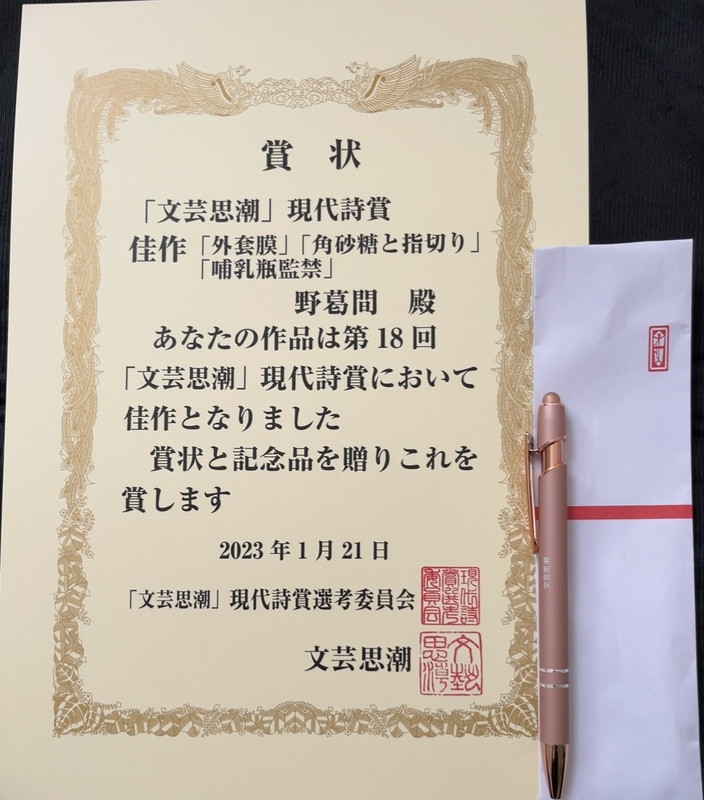 賞 状
「文芸思潮」現代詩賞
佳作「外套膜」「角砂糖と指切り」
「哺乳瓶監禁」
野葛間 殿
あなたの作品は第18回
「文芸思潮」現代詩賞において
佳作となりました
賞状と記念品を贈りこれを
賞します
2023年1月21日
「文芸思潮」現代詩賞選考委員会
現代詩賞選考委員会
文芸思潮
文藝思潮
文芸思潮